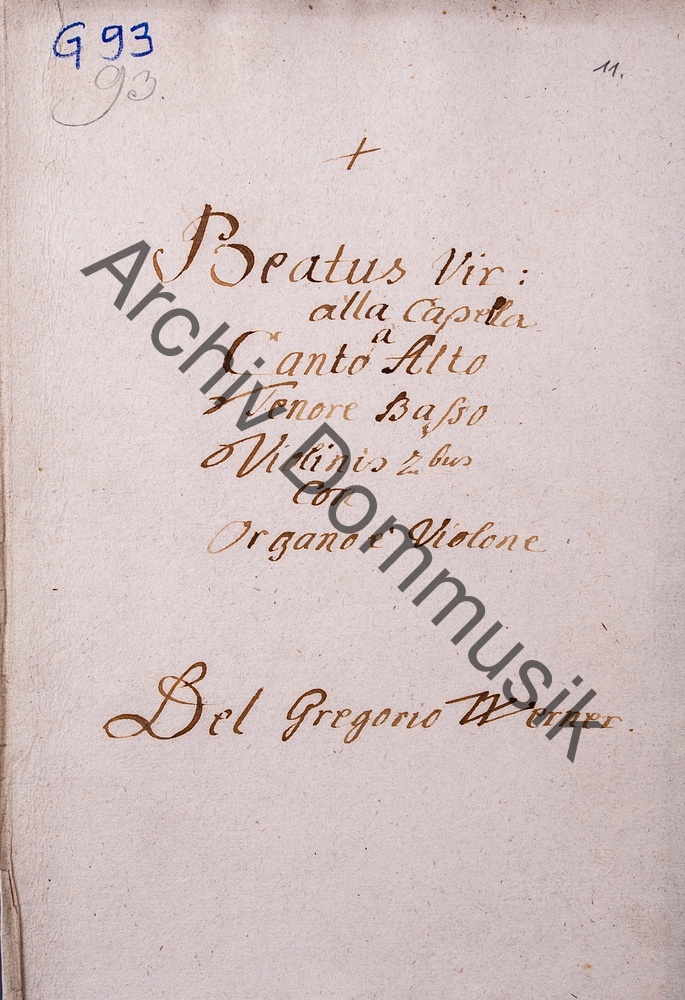 G 93
93
11.
+
Beatus Vir:
alla Capella
a
Canto Alto
Tenore Baſso
Violinis 2bus
con
Organo e Violone
Del Gregorio Werner.
Archiv Dommusik